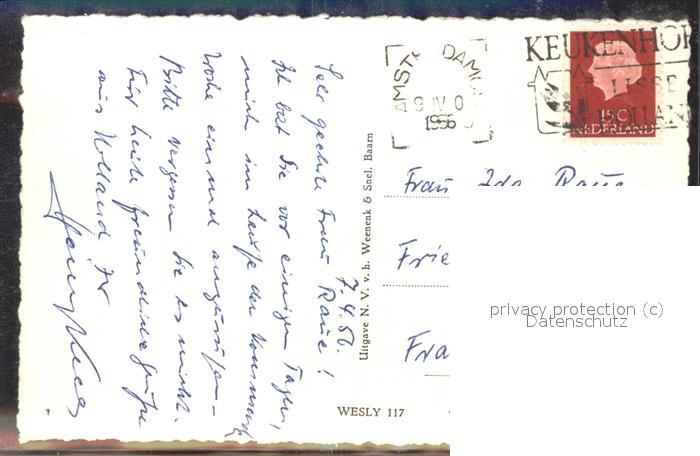 7.4.56.
Sehr geehrte Frau Raue!
Ich bat Sie vor einigen Tagen,
mich im Laufe der kommenden
Woche einmal anzurufen –
Bitte vergessen Sie es nicht.
Für heute freundliche Grüße
aus Holland Ihr
Uitgave N. V. v. h. Weenenk & Snel, Baarn
WESLY 117
AMST DAM
9 IV 0
1956
KEUKENHOF
LISSE
HOLLAND
15 C
NEDERLAND
Frau Ida Raue
Frie
Fra
privacy protection (c)
Datenschutz